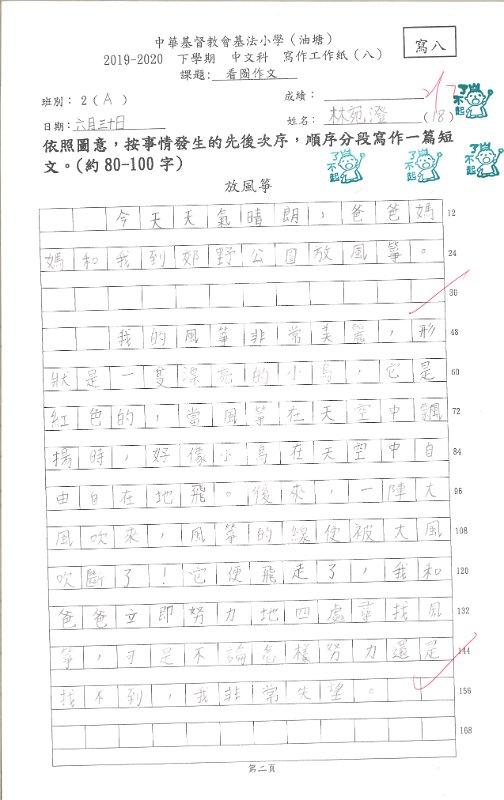 中華基督教會基法小學（油塘）
寫八
2019-2020 下學期 中文科 寫作工作紙（八）
課題: 看圖作文
班別: 2（A） 成績:
日期: 六月三十日 姓名: 林宛澄 (18)
依照圖意，按事情發生的先後次序，順序分段寫作一篇短
文。(約 80-100 字)
了不起 了不起 了不起
放風箏
今天天氣晴朗，爸爸媽 12
媽和我到郊野公園放風箏。 24
36
我的風箏非常美麗，形 48
狀是一隻漂亮的小鳥，它是 60
紅色的，當風箏在天空中飄 72
揚時，好像小鳥在天空中自 84
由自在地飛。後來，一陣大 96
風吹來，風箏的線使被大風 108
吹斷了！它便飛走了，我和 120
爸爸立即努力地四處尋找風 132
箏，可是不論怎樣努力還是 144
找不到，我非常失望。 156
168
第二頁